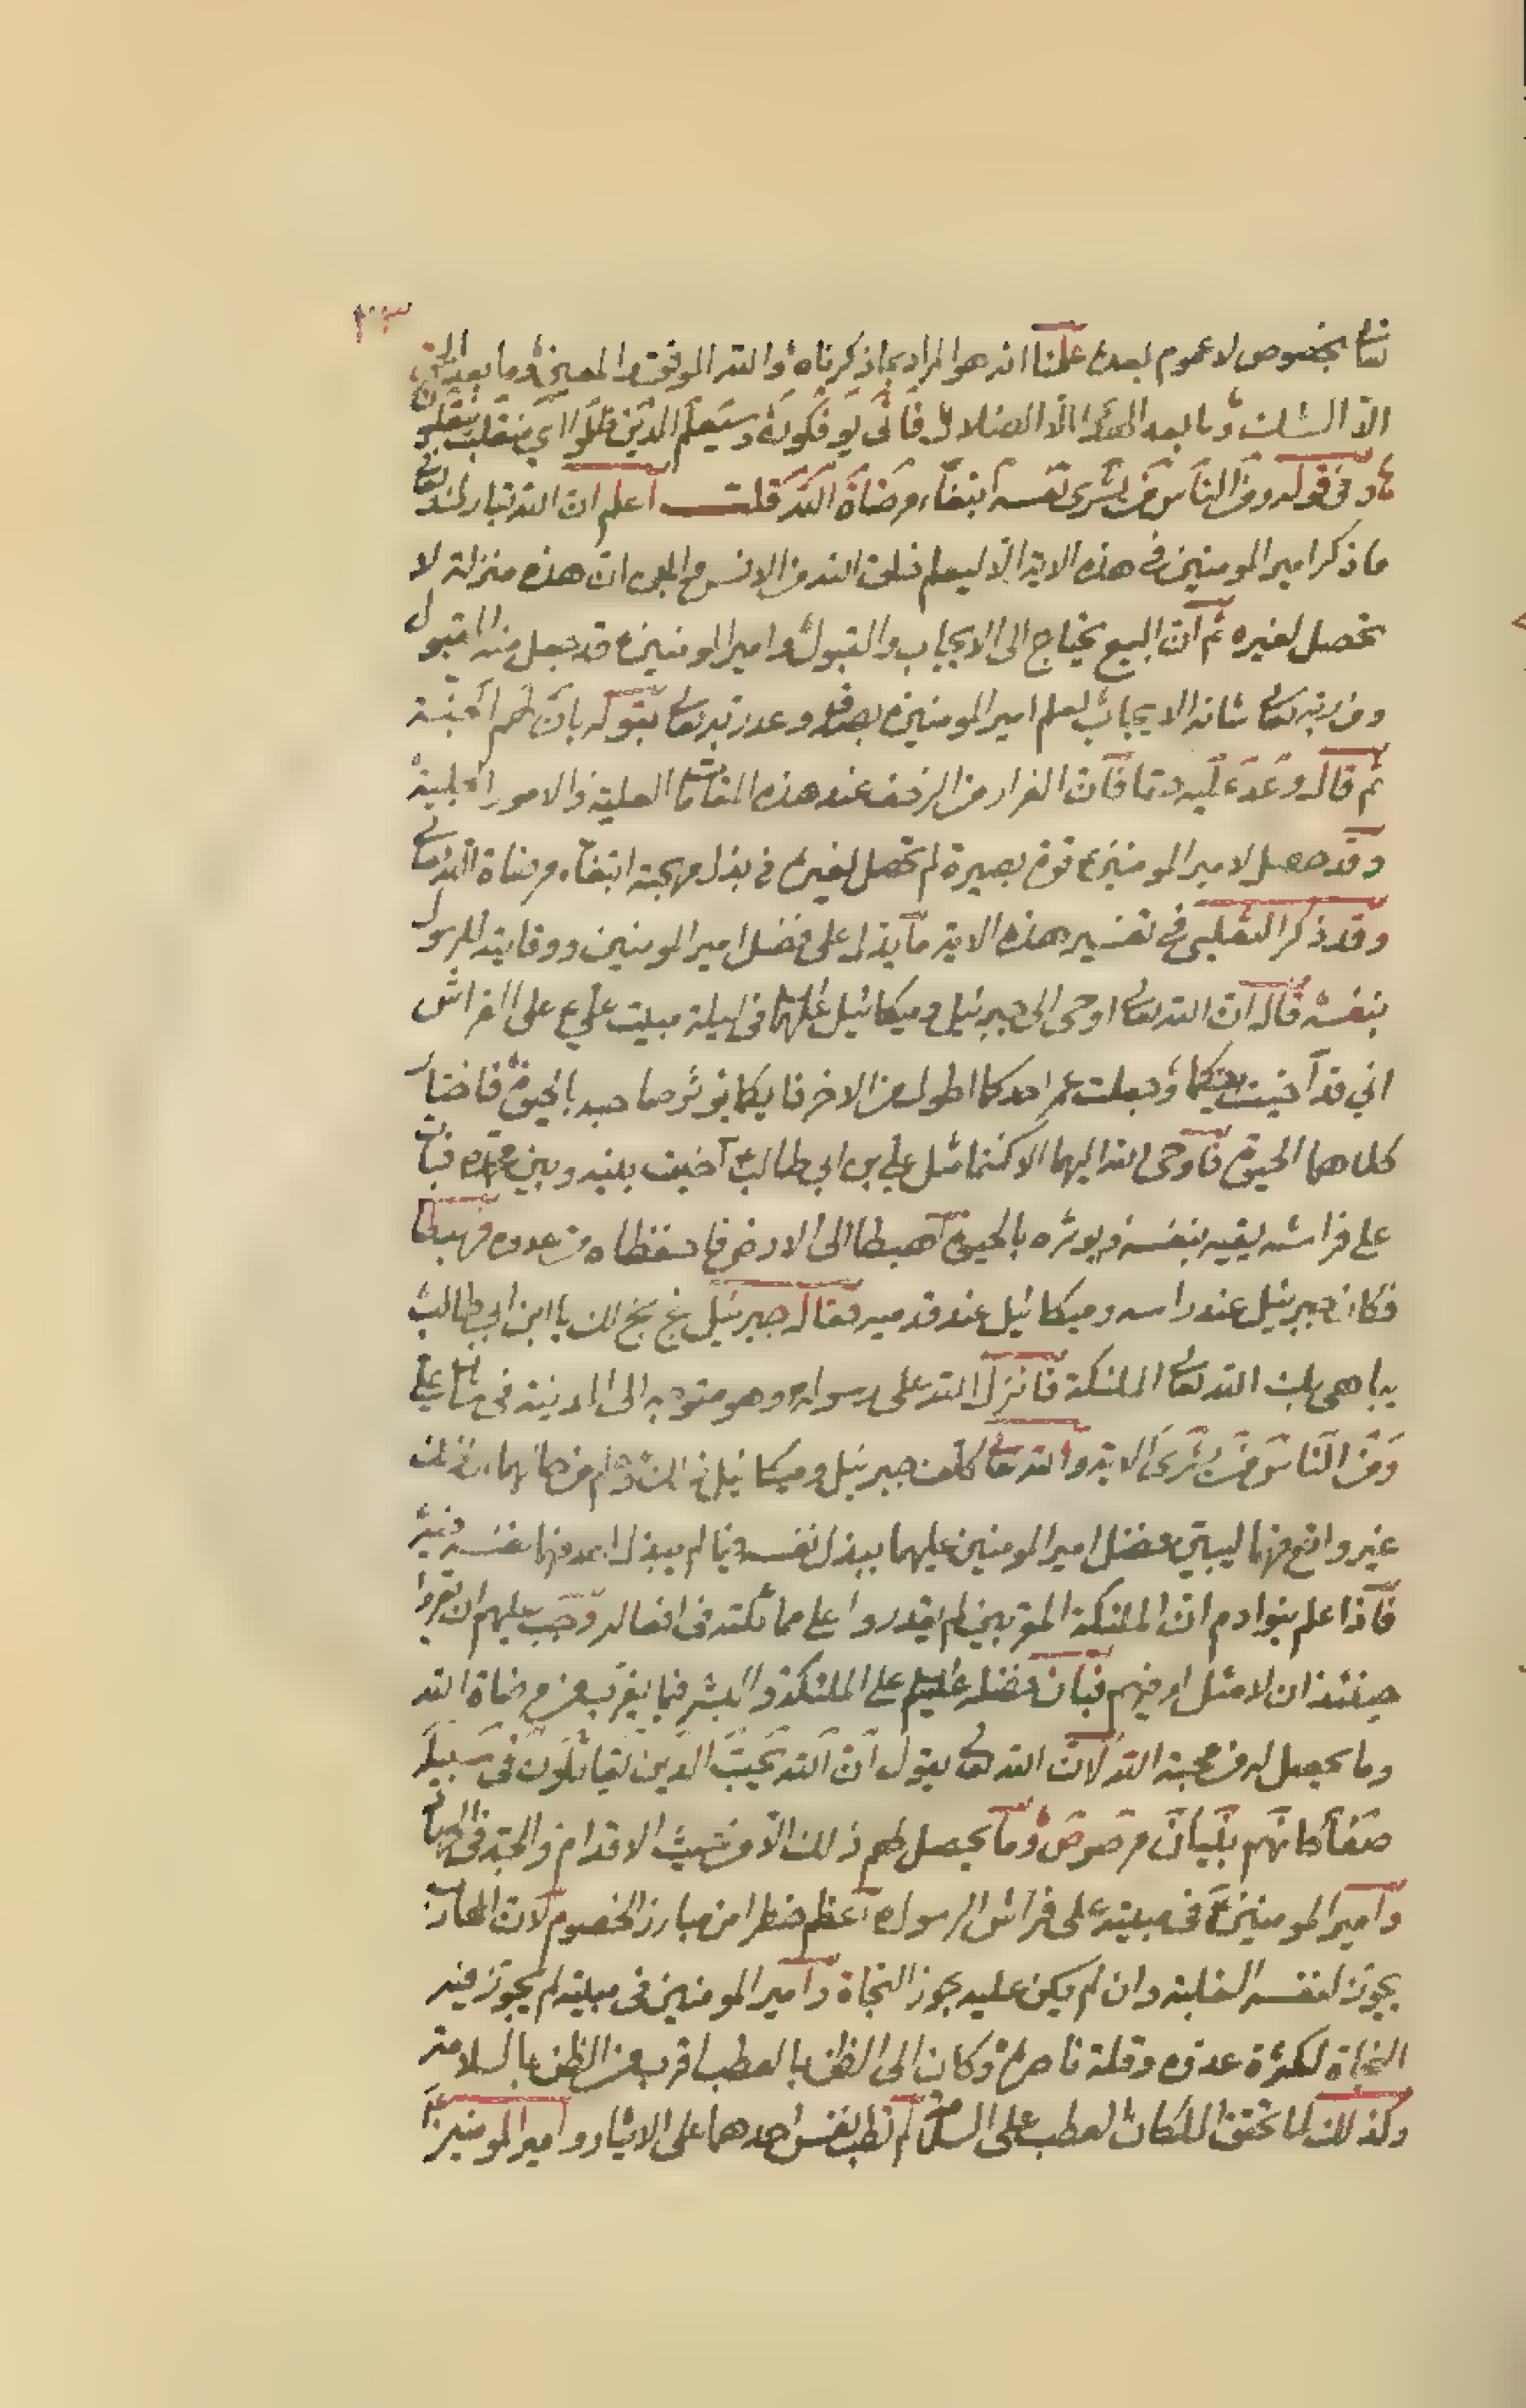 تعالى بخصوص لا عموم بعده علمنا انه هو المراد بما ذكرناه والله الموفق والمعين وما بعد الحق
الا الشك وما بعد الهدى الا الضلال فَاَنّى يُوفكون وَسَيَعلَم الذين ظلموا اي منقلب ينقلبون
في قوله ومن الناس من يشرى نفسه ابتغاء مرضاة الله قلت اعلم ان الله تبارك وتعالى
ما ذكر امير المومنين في هذه الاية الا ليعلم خلق الله من الانس والجن ان هذه منزلة لا
تحصل لغيره ثم ان البيع يحتاج الى الايجاب والقبول وامير المومنين ع قد جعل منه القبول
ومن ربه تعالى شانه الايجاب لعلم امير المومنين بصدق وعد ربه تعالى بقوله بان لهم الجنة
ثم قال وعدا عليه حقا فان الفرار من الزحف عند هذه المقامات العلية والامور الجلية
وقد حصل لامير المومنين ع قوة بصيرة لم تحصل لغيره في بذل مهجته ابتغاء مرضاة الله تعالى
وقد ذكر الثعلبي في تفسير هذه الاية ما يدل على فضل امير المومنين ووقايته للرسول
بنفسه قال ان الله تعالى اوحى الى جبرئيل وميكائيل عليهما في ليلة مبيت علي ع على الفراش
اني قد آخيت بينكما وجعلت عمر احدكما اطول من الاخر فايكما يوثر صاحبه بالحيوة فاختار
كلاهما الحيوة فاوحى الله اليهما الا كنتما مثل علي بن ابي طالب آخيت بينه وبين محمد فبات
على فراشه يقيه بنفسه ويوثره بالحيوة اهبطا الى الارض فاحفظاه من عدوه فهبطا
فكان جبرئيل عند راسه وميكائيل عند قدميه فقال جبرئيل بخ بخ لك يا ابن ابي طالب
يباهى بك الله تعالى الملئكة فانزل الله على رسوله وهو متوجه الى المدينة في شان علي
وَمن الناس من يشرى الاية والله تعالى كلف جبرئيل وميكائيل
غير واقع منهما ليبين فضل امير المومنين عليهما ببذل نفسه فيما لم يبذل احد منهما نفسه فيه
فاذا علم بنو ادم ان الملئكة المقربين لم يقدروا على مماثلته في افعاله وجب عليهم ان يقروا
حينئذ ان لا مثل له فيهم فبان فضله عليه السلم على الملئكة والبشر فيما يقرب من مرضاة الله
وما يحصل له من محبة الله لان الله تعالى يقول ان الله يحب الذين يقاتلون في سبيله
صفا كانهم بنيان مرصوص وما يحصل لهم ذلك الا من حيث الاقدام والجد في الجهاد
وامير المومنين ع في مبيته على فراش الرسول اعظم خطرا من مبارز الخصوم لان المحارب
يجوز لنفسه الغلبة وان لم يكن عليه يجوز النجاة وامير المومنين في مبيته لم يجوز فيه
النجاة لكثرة عدوه وقلة ناصره وكان الى الظن بالعطب اقرب من الظن بالسلامة
وكذلك لما تحقق الملكان العطب على السلامة لم تطب نفس احدهما على الايثار وامير المومنين